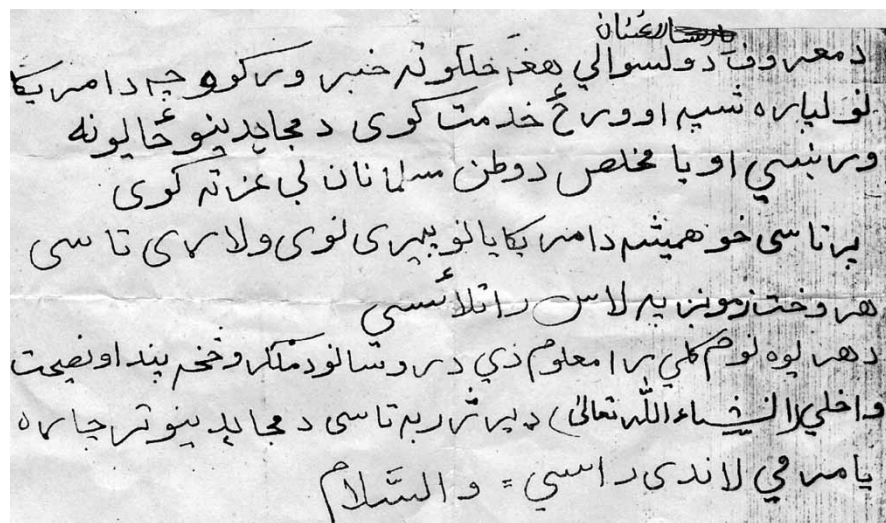 د معروف د ولسوالي هغه خلکو ته خبر ورکوو چه د امریکا
لپاره شپه او ورځ خدمت کوی د مجاهدینو ځایونه
ورښیي او یا مخلص د وطن مسلمانان بی عزته کوی
پر تاسی خو همیشه د امریکایانو بیری نوی ولاړی تاسی
هر وخت زمونږ په لاس راتلائسی
د هر یوه نوم کلي را معلوم دي د روسانو د ملګرو څخه پند او نصیحت
واخلي (انشاء الله تعالی) ډیر ژر به تاسی د مجاهدینو تر چاړه
یا مرمي لاندی راسي = والسَّلام